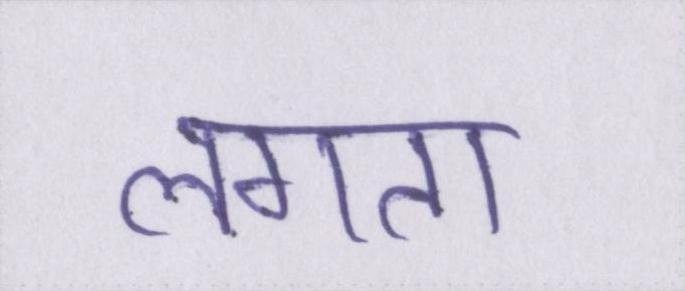 लगता